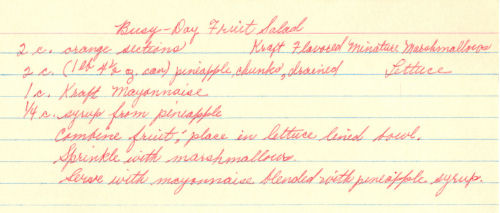 Busy-Day Fruit Salad
2 c. orange sections Kraft Flavored Minature Marshmallows
2 c. (1 lb 4½ oz. can) pineapple chunks, drained Lettuce
1 c. Kraft Mayonnaise
¼ c. syrup from pineapple
Combine fruit; place in lettuce lined bowl.
Sprinkle with marshmallows.
Serve with mayonnaise blended with pineapple syrup.